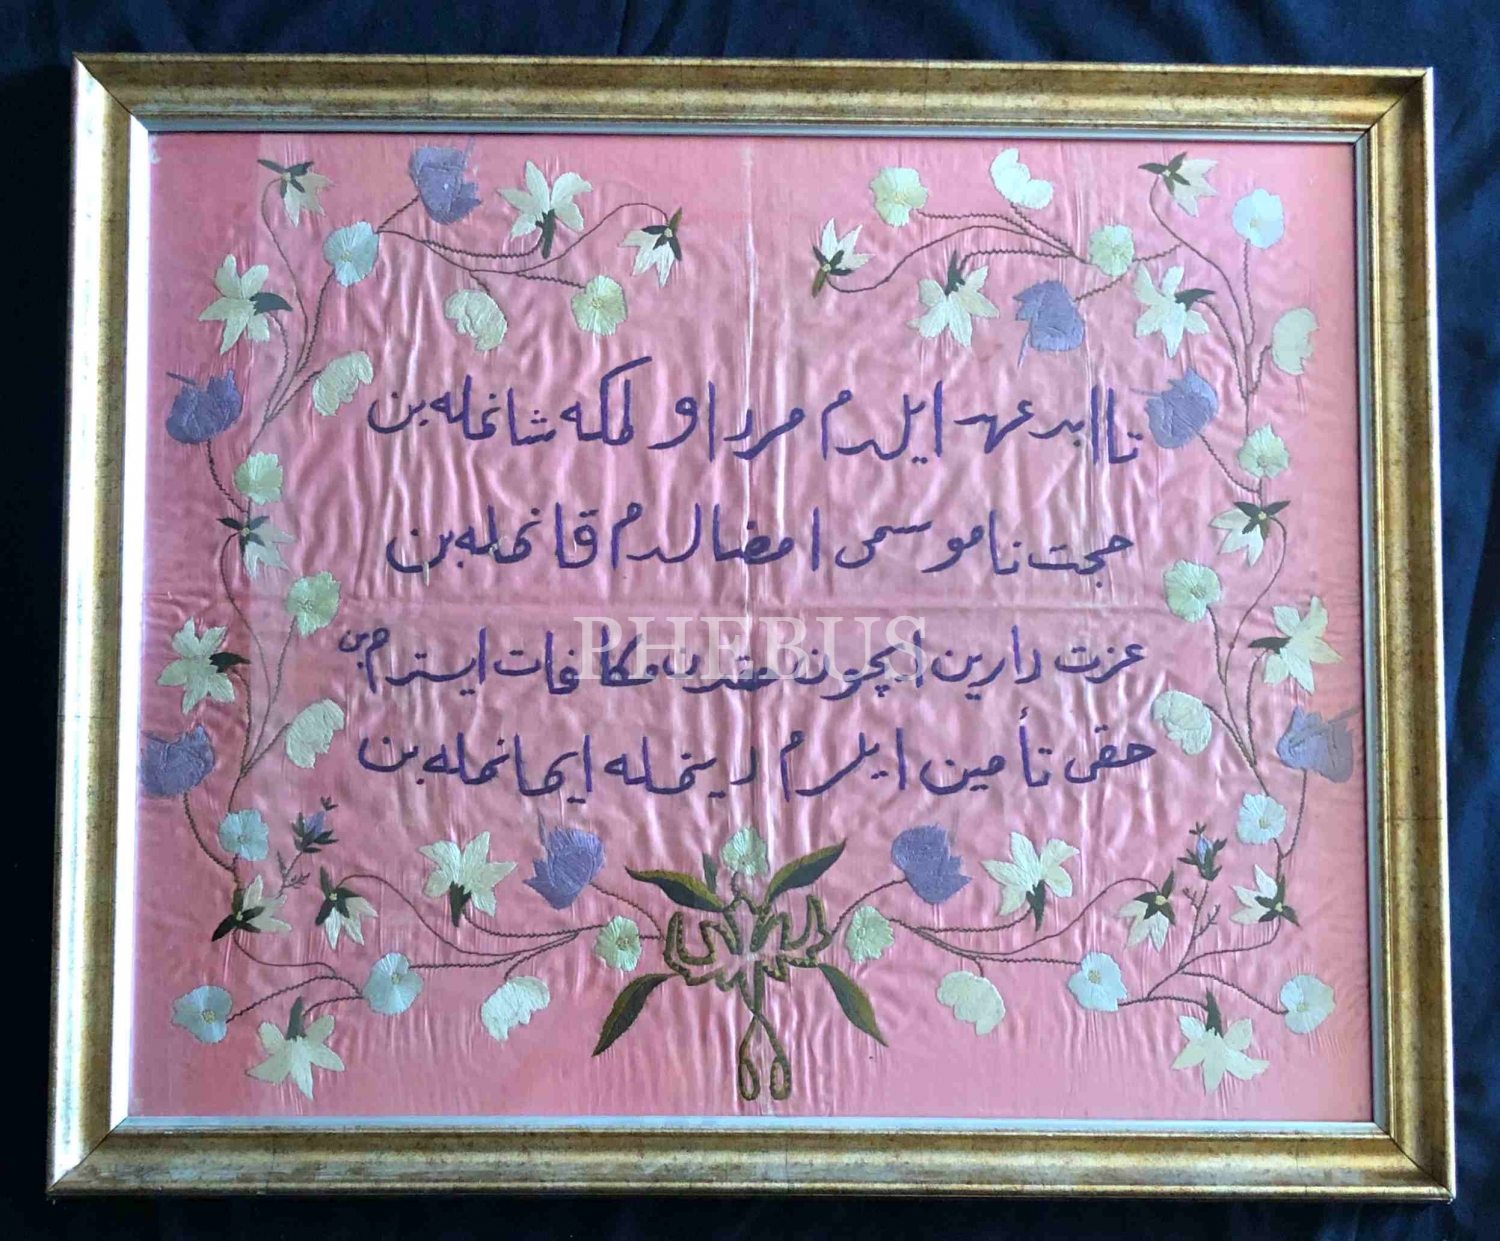 تا ابد عهد ایلدم مرد اولمكه شانمله بن
حجت ناموسمی امضالدم قانمله بن
عزت دارین ایچون مقدس مكافات ایسترم بن
حقی تأمین ایلرم دینمله ایمانمله بن
PHEBUS